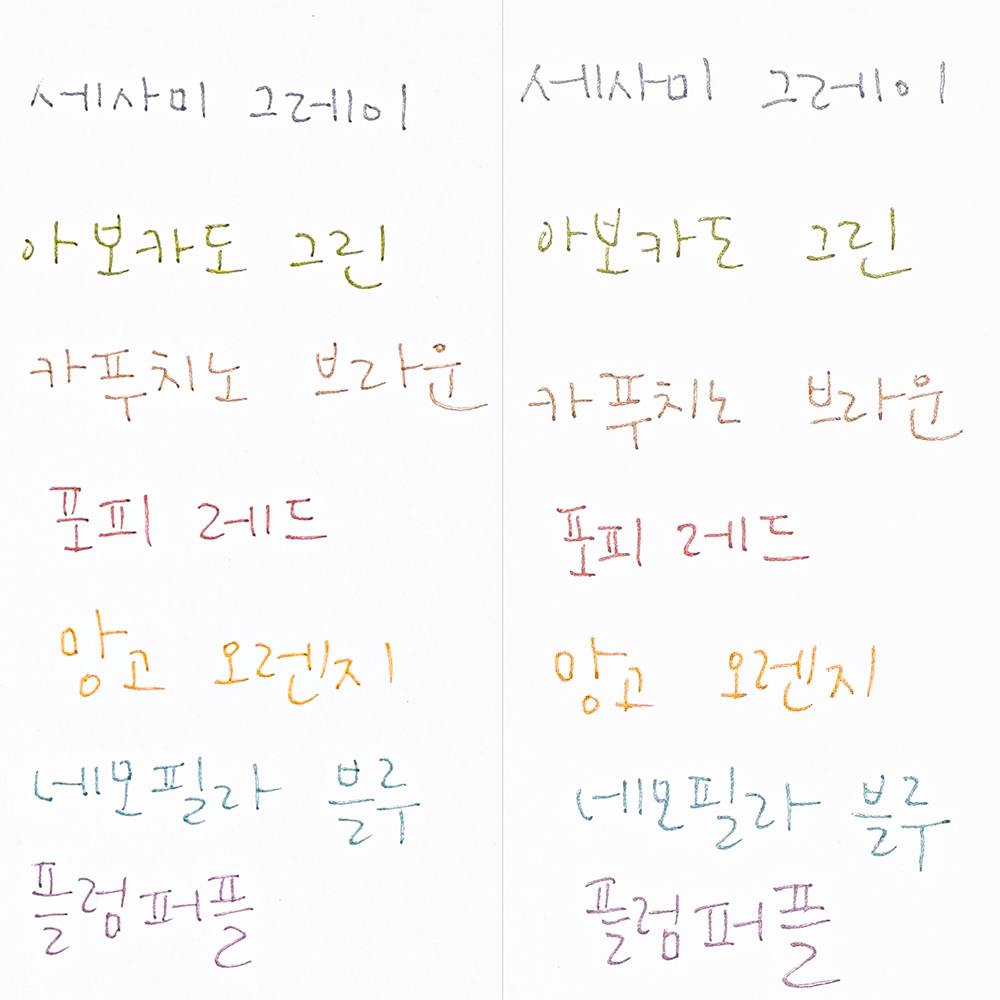 세사미 그레이
아보카도 그린
카푸치노 브라운
포피 레드
망고 오렌지
네모필라 블루
플럼퍼플
세사미 그레이
아보카도 그린
카푸치노 브라운
포피 레드
망고 오렌지
네모필라 블루
플럼퍼플